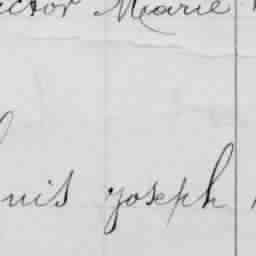 ctor Marie
uis Joseph